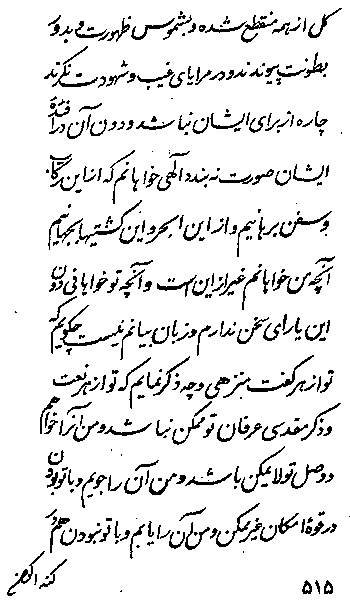 کل از همه منقطع شده و بشموس ظهورت و بدور
بطونت پیوندند و در مرایای غیب و شهودت نگرند
چاره از برای ایشان نباشد و دون آن در افئدهٔ
ایشان صورت نه بندد الهی خواهانم که از این
و سفن برهانیم و از این ابحر و این کشتیها بجهانیم
آنچه من خواهانم غیر از این است و آنچه تو خواهانی دون
این یارای سخن ندارم و زبان بیانم نیست چگویم که
تو از هر گفت منزهی و چه ذکر نمایم که تو از هر نعت
و ذکر مقدسی عرفان تو ممکن نباشد و من آنرا خواهم
و وصل تو لایمکن باشد و من آن را جویم و با تو بودن
در قوهٔ امکان غیر ممکن و من آن را یابم و با تو نبودن هم
۵۱۵